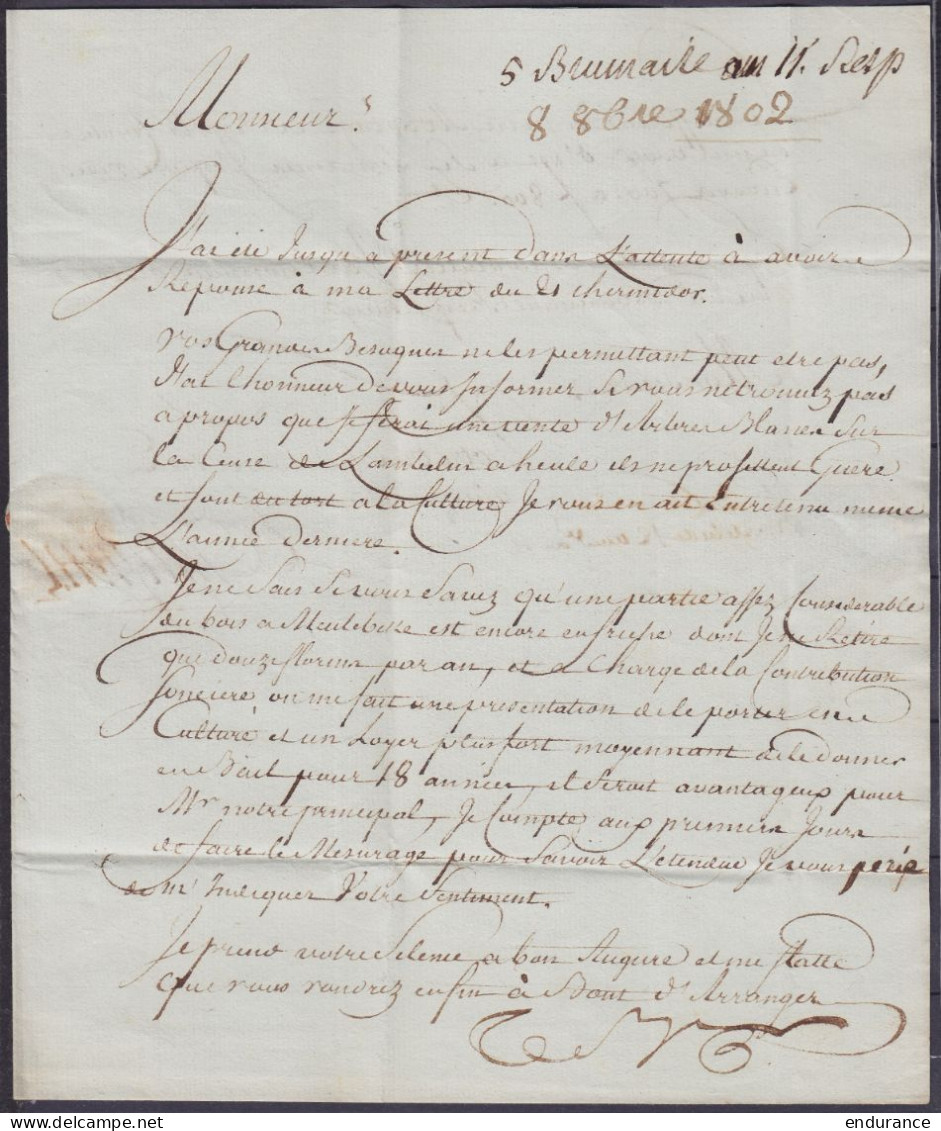 5 Brumaire an 11. Rep
8 8bre 1802
Monsieur.
J'ai été Jusqu'a present dans L'attente à avoire
Reponse à ma Lettre du 21 thermidor.
vos Grandes Besognes ne les permettant petit etre pas,
J'ai l'honneur de vous Informer si vous ne trouvez pas
a propos que Je ferai une vente d'Arbres Blancs sur
la Cense de a heule ils ne profittent Guère
et font du tort a la Culture, Je vous en ait Entretenu meme
L'année derniere.
Je ne sais si vous savez qu'une partie assez Considerable
du bois a Meulebeke est encore en friche dont Je ne Retire
que douze florins par an, et a Charge de la Contribution
fonciere on me fait une presentation de le porter en
Culture et un Loyer plus fort moyennant de le donner
en Bail pour 18 années, il seroit avantageux pour
Mr notre principal, Je Compte aux premiers Jours
de faire le Mesurage pour Savoir L'etendue Je vous prie
de m'Indiquer Votre Sentiment.
Je prend votre silence a bon Augure et me flatte
que vous voudrez enfin à Bout d'Arranger
endurance